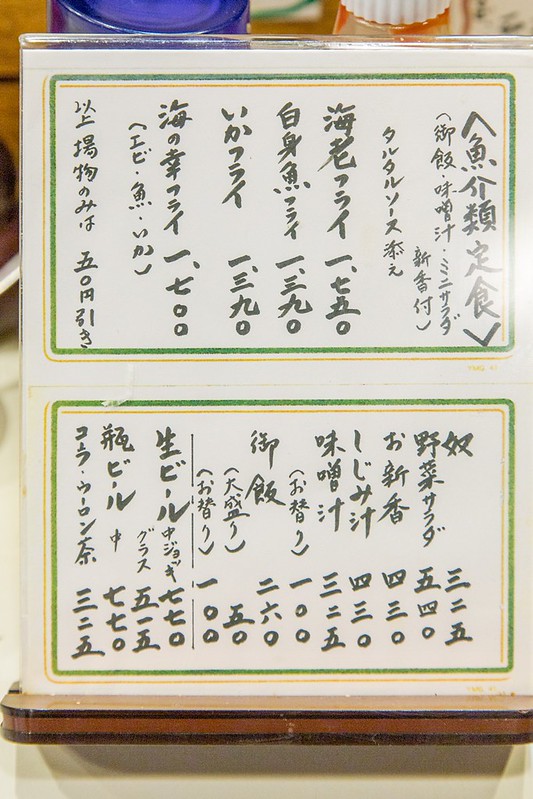 〈魚介類定食〉
（御飯・味噌汁・ミニサラダ
新香付）
タルタルソース添え
海老フライ 一、七五〇
白身魚フライ 一、三九〇
いかフライ 一、三九〇
海の幸フライ 一、七〇〇
（エビ・魚・いか）
以上揚物のみは 五〇円引き
奴 三二五
野菜サラダ 五四〇
お新香 四三〇
しじみ汁 四三〇
味噌汁 三二五
（お替り） 一〇〇
御飯 二六〇
（大盛り） 五〇
（お替り） 一〇〇
生ビール 中ジョッキ 七七〇
グラス 五一五
瓶ビール 中 七七〇
コーラ・ウーロン茶 三二五